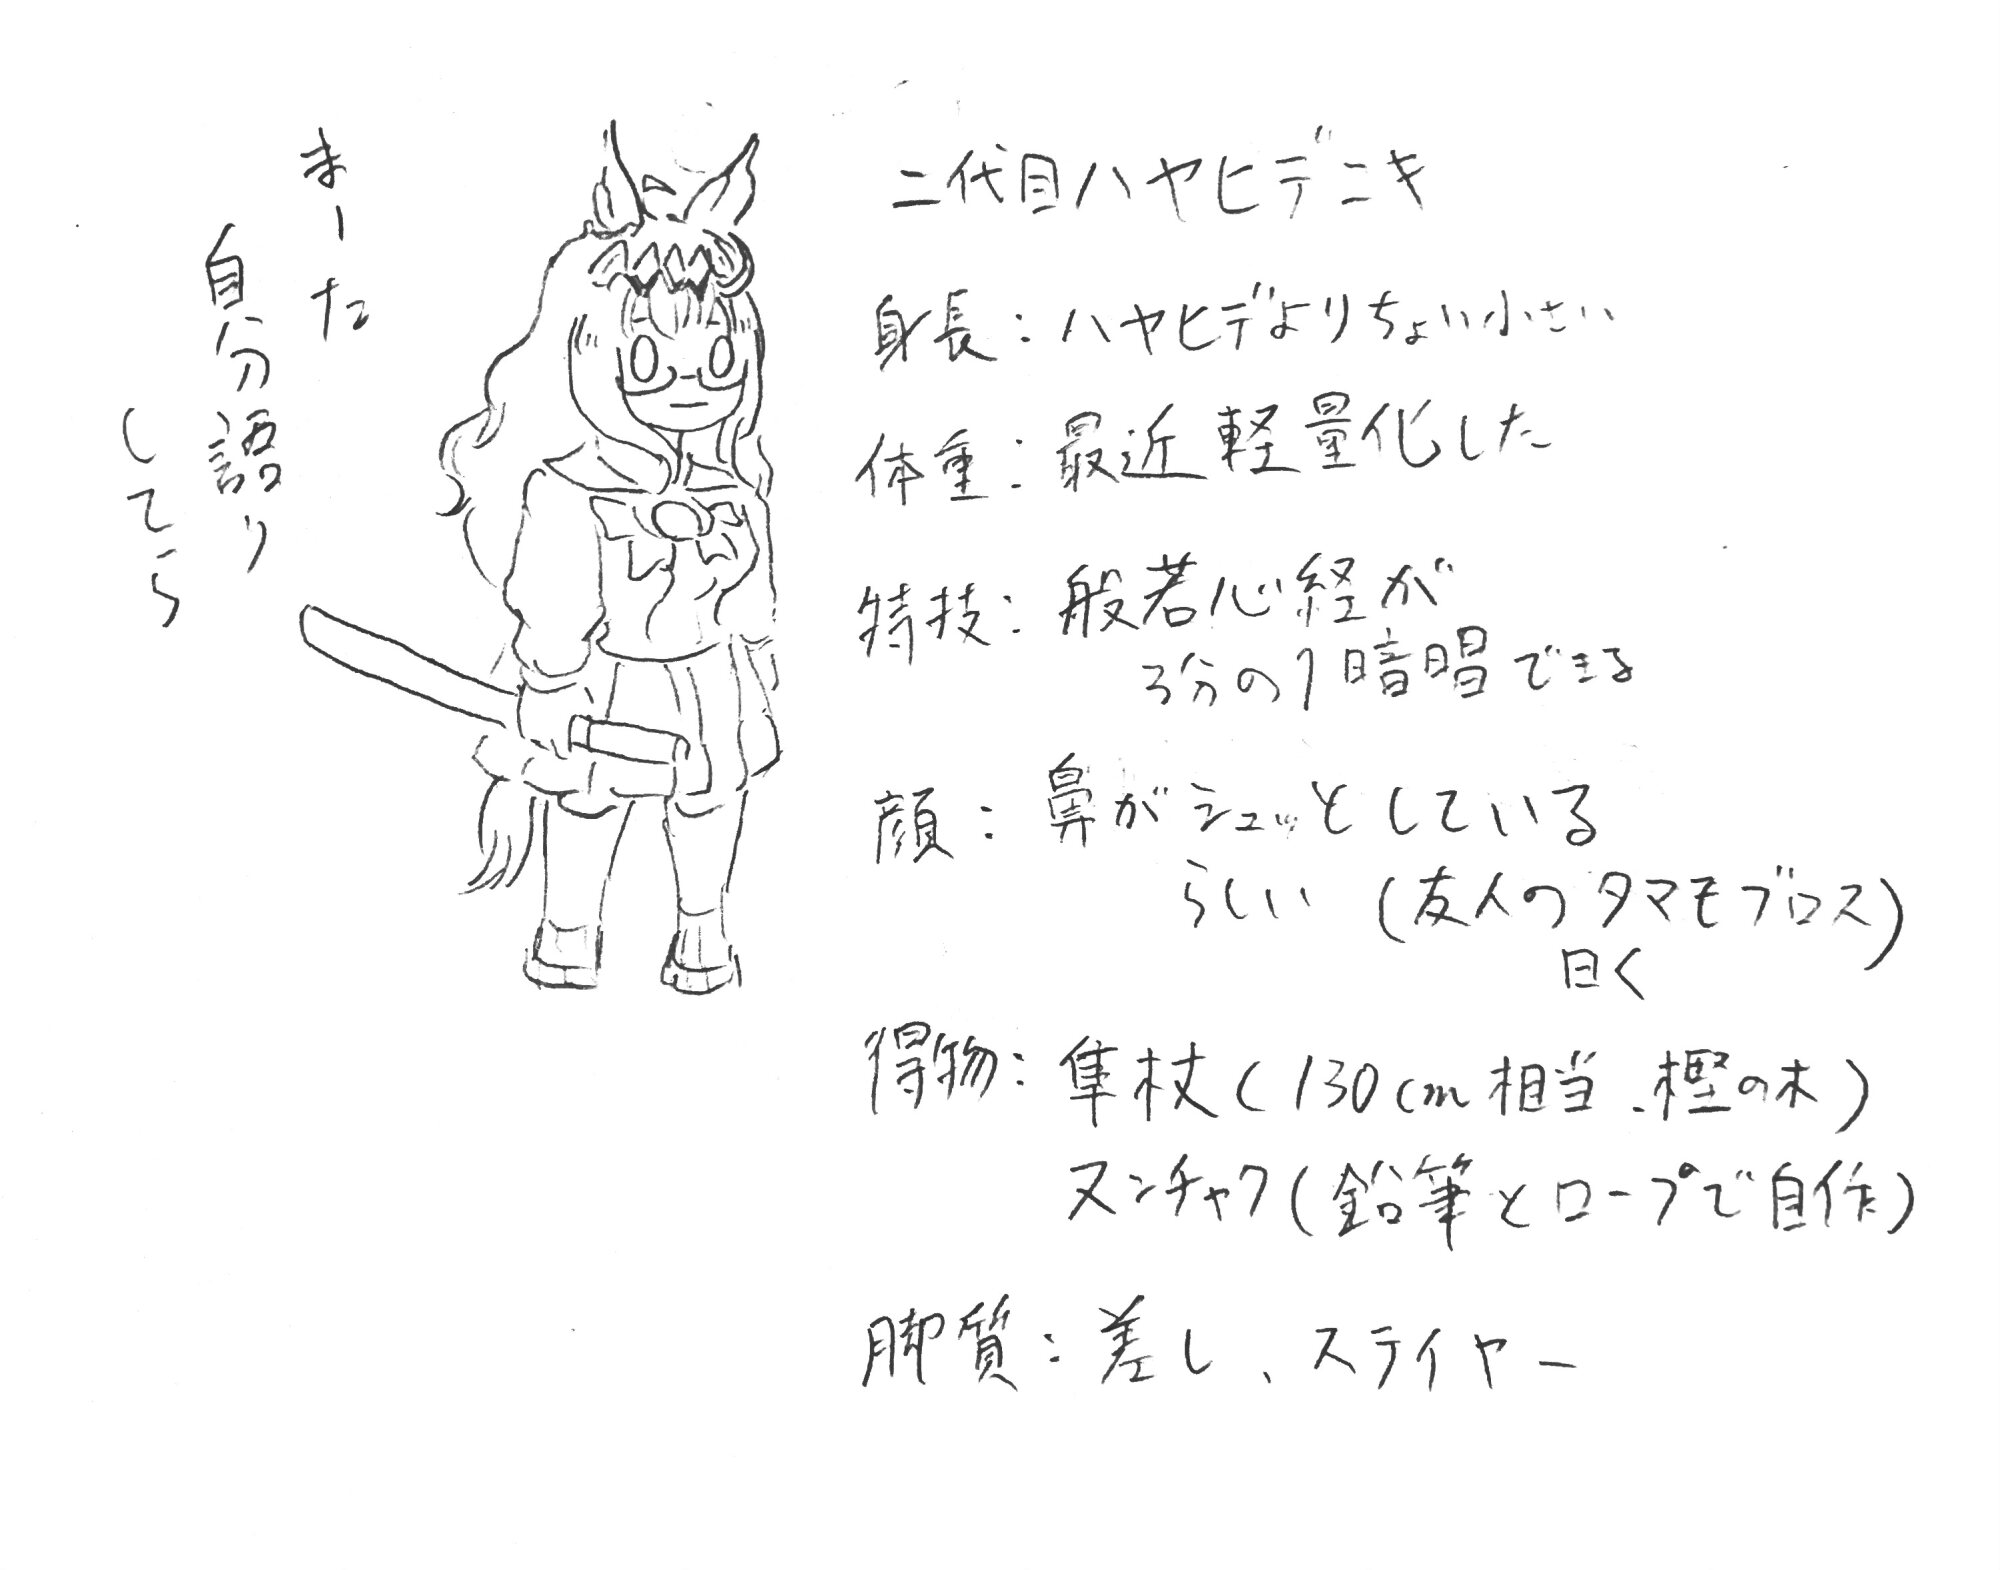 まーた
自分語り
してら
二代目ハヤヒデニキ
身長：ハヤヒデよりちょい小さい
体重：最近軽量化した
特技：般若心経が
3分の1暗唱できる
顔：鼻がシュッとしている
らしい（友人のタマモブロス）
曰く
得物：隼杖（130cm相当、樫の木）
ヌンチャク（鉛筆とロープで自作）
脚質：差し、ステイヤー